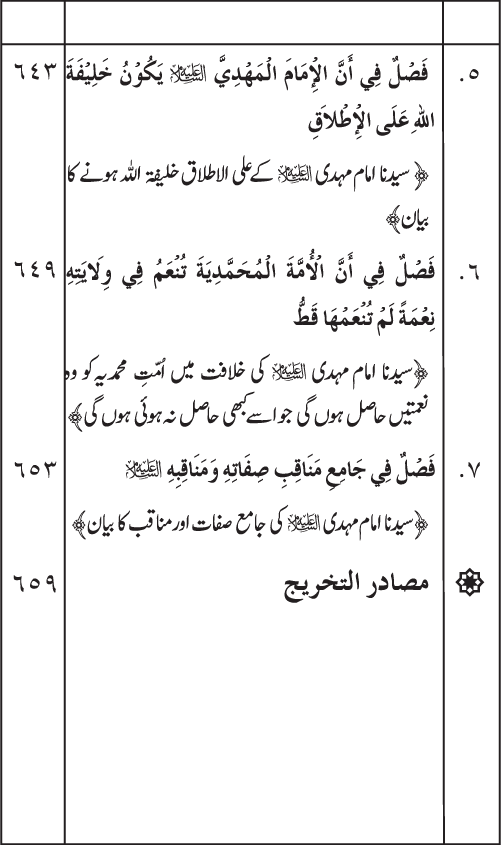 ٥. فَصْلٌ فِي أَنَّ الْإِمَامَ الْمَهْدِيَّ عليه السلام يَكُوْنُ خَلِيْفَةَ ٦٤٣
اللهِ عَلَى الْإِطْلَاقِ
﴿سیدنا امام مہدی علیہ السلام کے علی الاطلاق خلیفۃ اللہ ہونے کا
بیان﴾
٦. فَصْلٌ فِي أَنَّ الْأُمَّةَ الْمُحَمَّدِيَةَ تُنْعَمُ فِي وِلَايَتِهِ ٦٤٩
نِعْمَةً لَمْ تُنْعَمْهَا قَطُّ
﴿سیدنا امام مہدی علیہ السلام کی خلافت میں اُمّتِ محمدیہ کو وہ
نعمتیں حاصل ہوں گی جو اسے کبھی حاصل نہ ہوئی ہوں گی﴾
٧. فَصْلٌ فِي جَامِعِ مَنَاقِبِ صِفَاتِهِ وَمَنَاقِبِهِ عليه السلام ٦٥٣
﴿سیدنا امام مہدی علیہ السلام کی جامع صفات اور مناقب کا بیان﴾
مصادر التخريج ٦٥٩